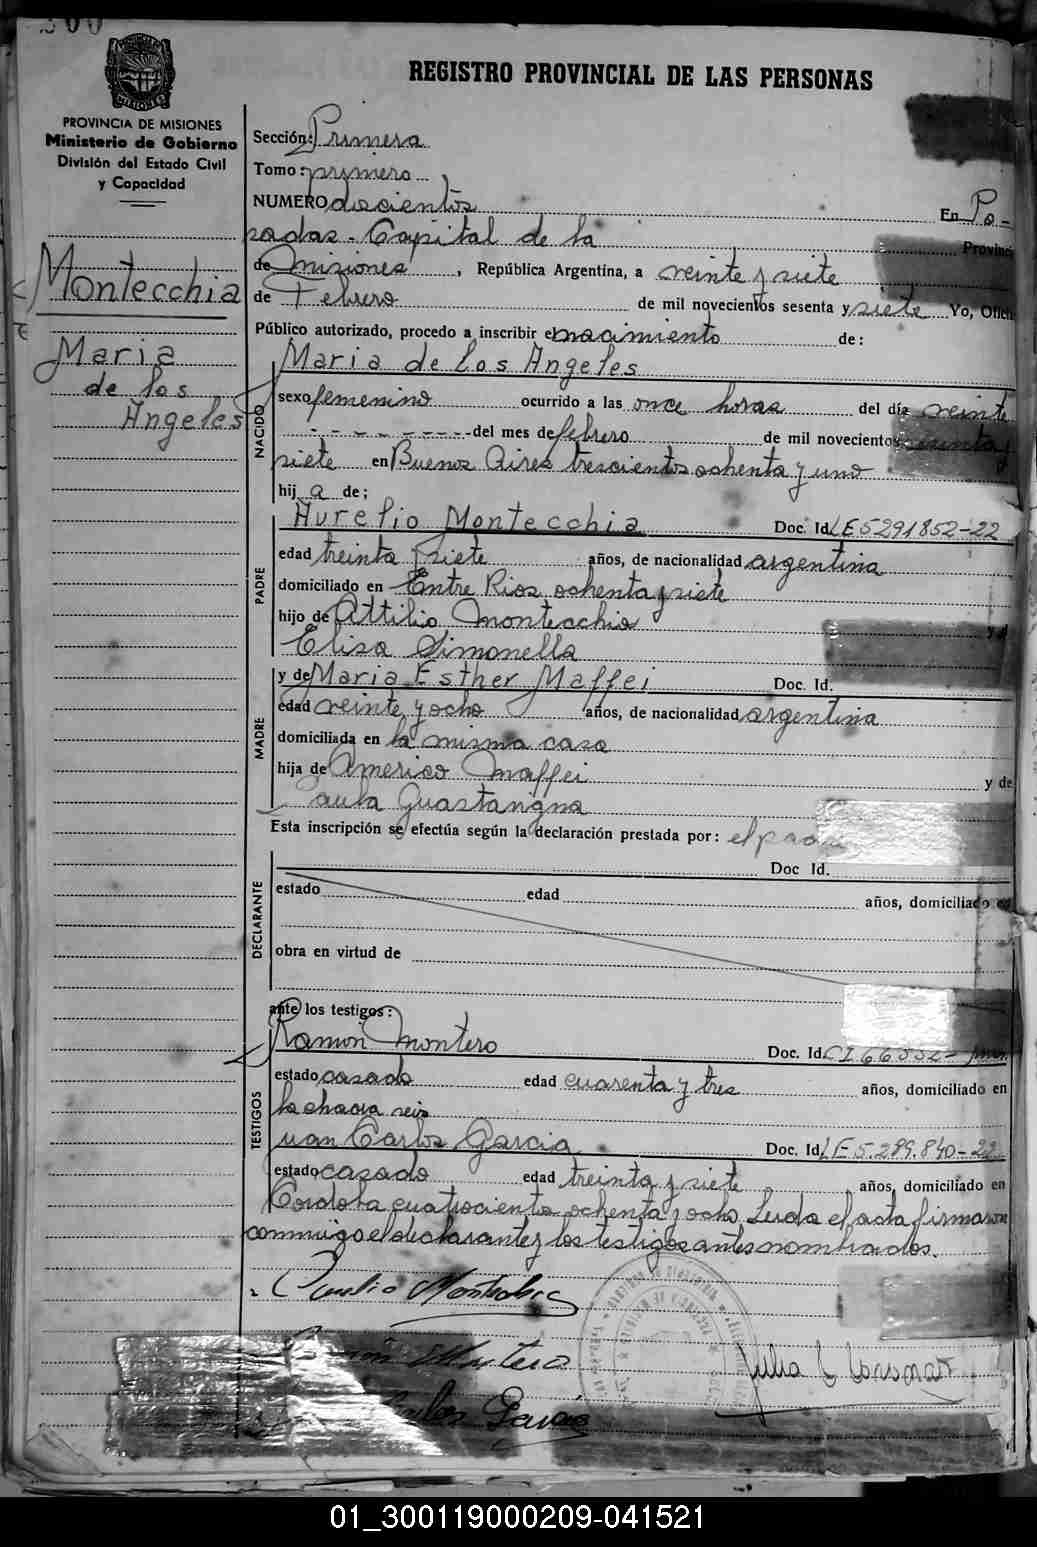 300
PROVINCIA DE MISIONES
Ministerio de Gobierno
División del Estado Civil
y Capacidad
Montecchia
Maria
de los
Angeles
REGISTRO PROVINCIAL DE LAS PERSONAS
Sección: Primera
Tomo: primero
NUMERO doscientos En Po-
sadas - Capital de la Provinc
de Misiones, República Argentina, a veinte y siete
de Febrero de mil novecientos sesenta y siete Yo, Ofici
Público autorizado, procedo a inscribir el nacimiento de:
NACIDO
Maria de los Angeles
sexo femenino ocurrido a las once horas del día veinte
del mes de febrero de mil novecientos sesenta y
siete en Buenos Aires trescientos ochenta y uno
hij a de;
PADRE
Aurelio Montecchia Doc. Id. LE 5291852-22
edad treinta y siete años, de nacionalidad argentina
domiciliado en Entre Rios ochenta y siete
hijo de Attilio Montecchia y d
Elisa Simonella
MADRE
y de Maria Esther Maffei Doc. Id.
edad veinte y ocho años, de nacionalidad argentina
domiciliada en la misma casa
hija de Americo Maffei y de
Paula Guastavigna
Esta inscripción se efectúa según la declaración prestada por: el padre
DECLARANTE
Doc Id.
estado edad años, domiciliado en
obra en virtud de
ante los testigos:
TESTIGOS
Ramon Montero Doc. Id. CI 66.552-
estado casado edad cuarenta y tres años, domiciliado en
la chacra seis
Juan Carlos Garcia Doc. Id. LE 5.289.840-22
estado casado edad treinta y siete años, domiciliado en
Cordoba cuatrocientos ochenta y ocho. Leida el acta firmaron
conmigo el declarante y los testigos antes nombrados.
Aurelio Montecchia
Ramón Montero
Carlos Garcia
01_300119000209-041521